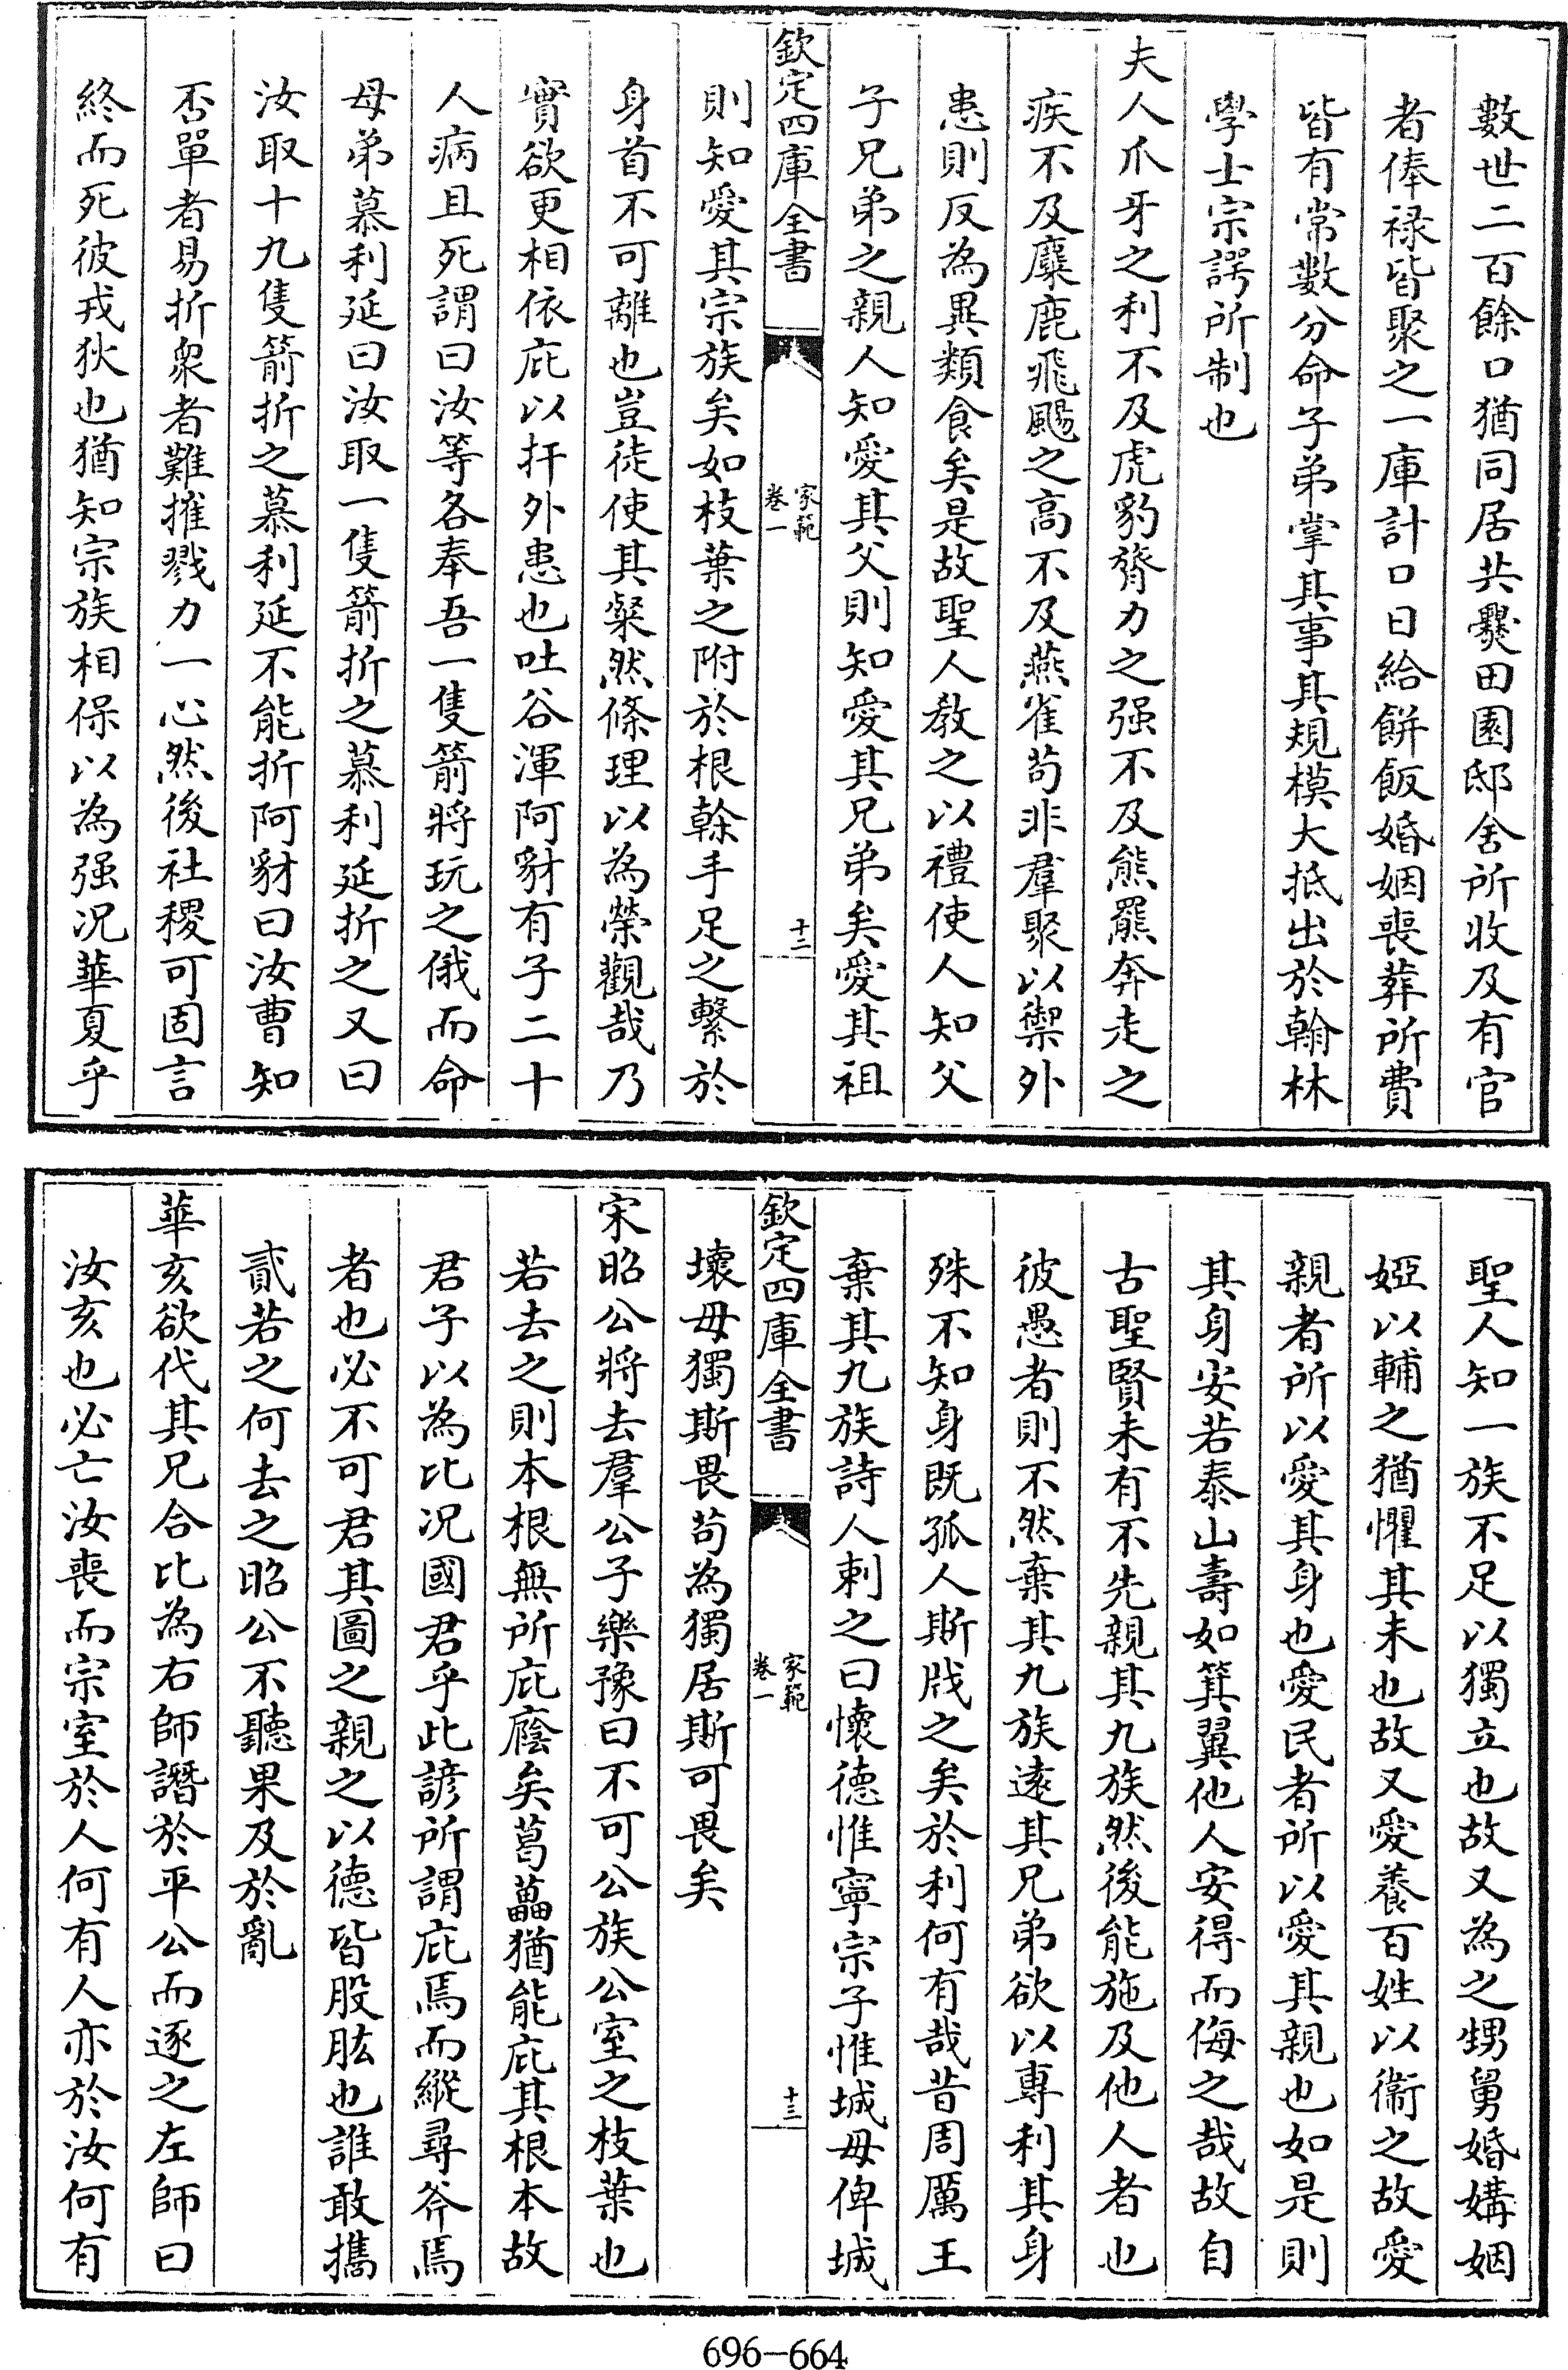 數世二百餘口猶同居共㸑田園邸舍所收及有官
者俸禄皆聚之一庫計口日給餅飯婚姻喪葬所費
皆有常數分命子弟掌其事其規模大抵出於翰林
學士宗諤所制也
夫人爪牙之利不及虎豹膂力之强不及熊羆奔走之
疾不及麋鹿飛颺之高不及燕雀茍非羣聚以禦外
患則反為異類食矣是故聖人教之以禮使人知父
子兄弟之親人知愛其父則知愛其兄弟矣愛其祖
欽定四庫全書
家範
卷一
十二
則知愛其宗族矣如枝葉之附於根榦手足之繫於
身首不可離也豈徒使其粲然條理以為榮觀哉乃
實欲更相依庇以扞外患也吐谷渾阿豺有子二十
人病且死謂曰汝等各奉吾一隻箭將玩之俄而命
母弟慕利延曰汝取一隻箭折之慕利延折之又曰
汝取十九隻箭折之慕利延不能折阿豺曰汝曹知
否單者易折衆者難摧戮力一心然後社稷可固言
終而死彼戎狄也猶知宗族相保以為强况華夏乎
聖人知一族不足以獨立也故又為之甥舅婚媾姻
婭以輔之猶懼其未也故又愛養百姓以衞之故愛
親者所以愛其身也愛民者所以愛其親也如是則
其身安若泰山壽如箕翼他人安得而侮之哉故自
古聖賢未有不先親其九族然後能施及他人者也
彼愚者則不然棄其九族逺其兄弟欲以專利其身
殊不知身既孤人斯戕之矣於利何有哉昔周厲王
棄其九族詩人刺之曰懷德惟寧宗子惟城毋俾城
欽定四庫全書
家範
卷一
十三
壞毋獨斯畏茍為獨居斯可畏矣
宋昭公將去羣公子樂豫曰不可公族公室之枝葉也
若去之則本根無所庇廕矣葛藟猶能庇其根本故
君子以為比况國君乎此諺所謂庇焉而縱尋斧焉
者也必不可君其圖之親之以德皆股肱也誰敢攜
貳若之何去之昭公不聽果及於亂
華亥欲代其兄合比為右師譖於平公而逐之左師曰
汝亥也必亡汝喪而宗室於人何有人亦於汝何有
696-664